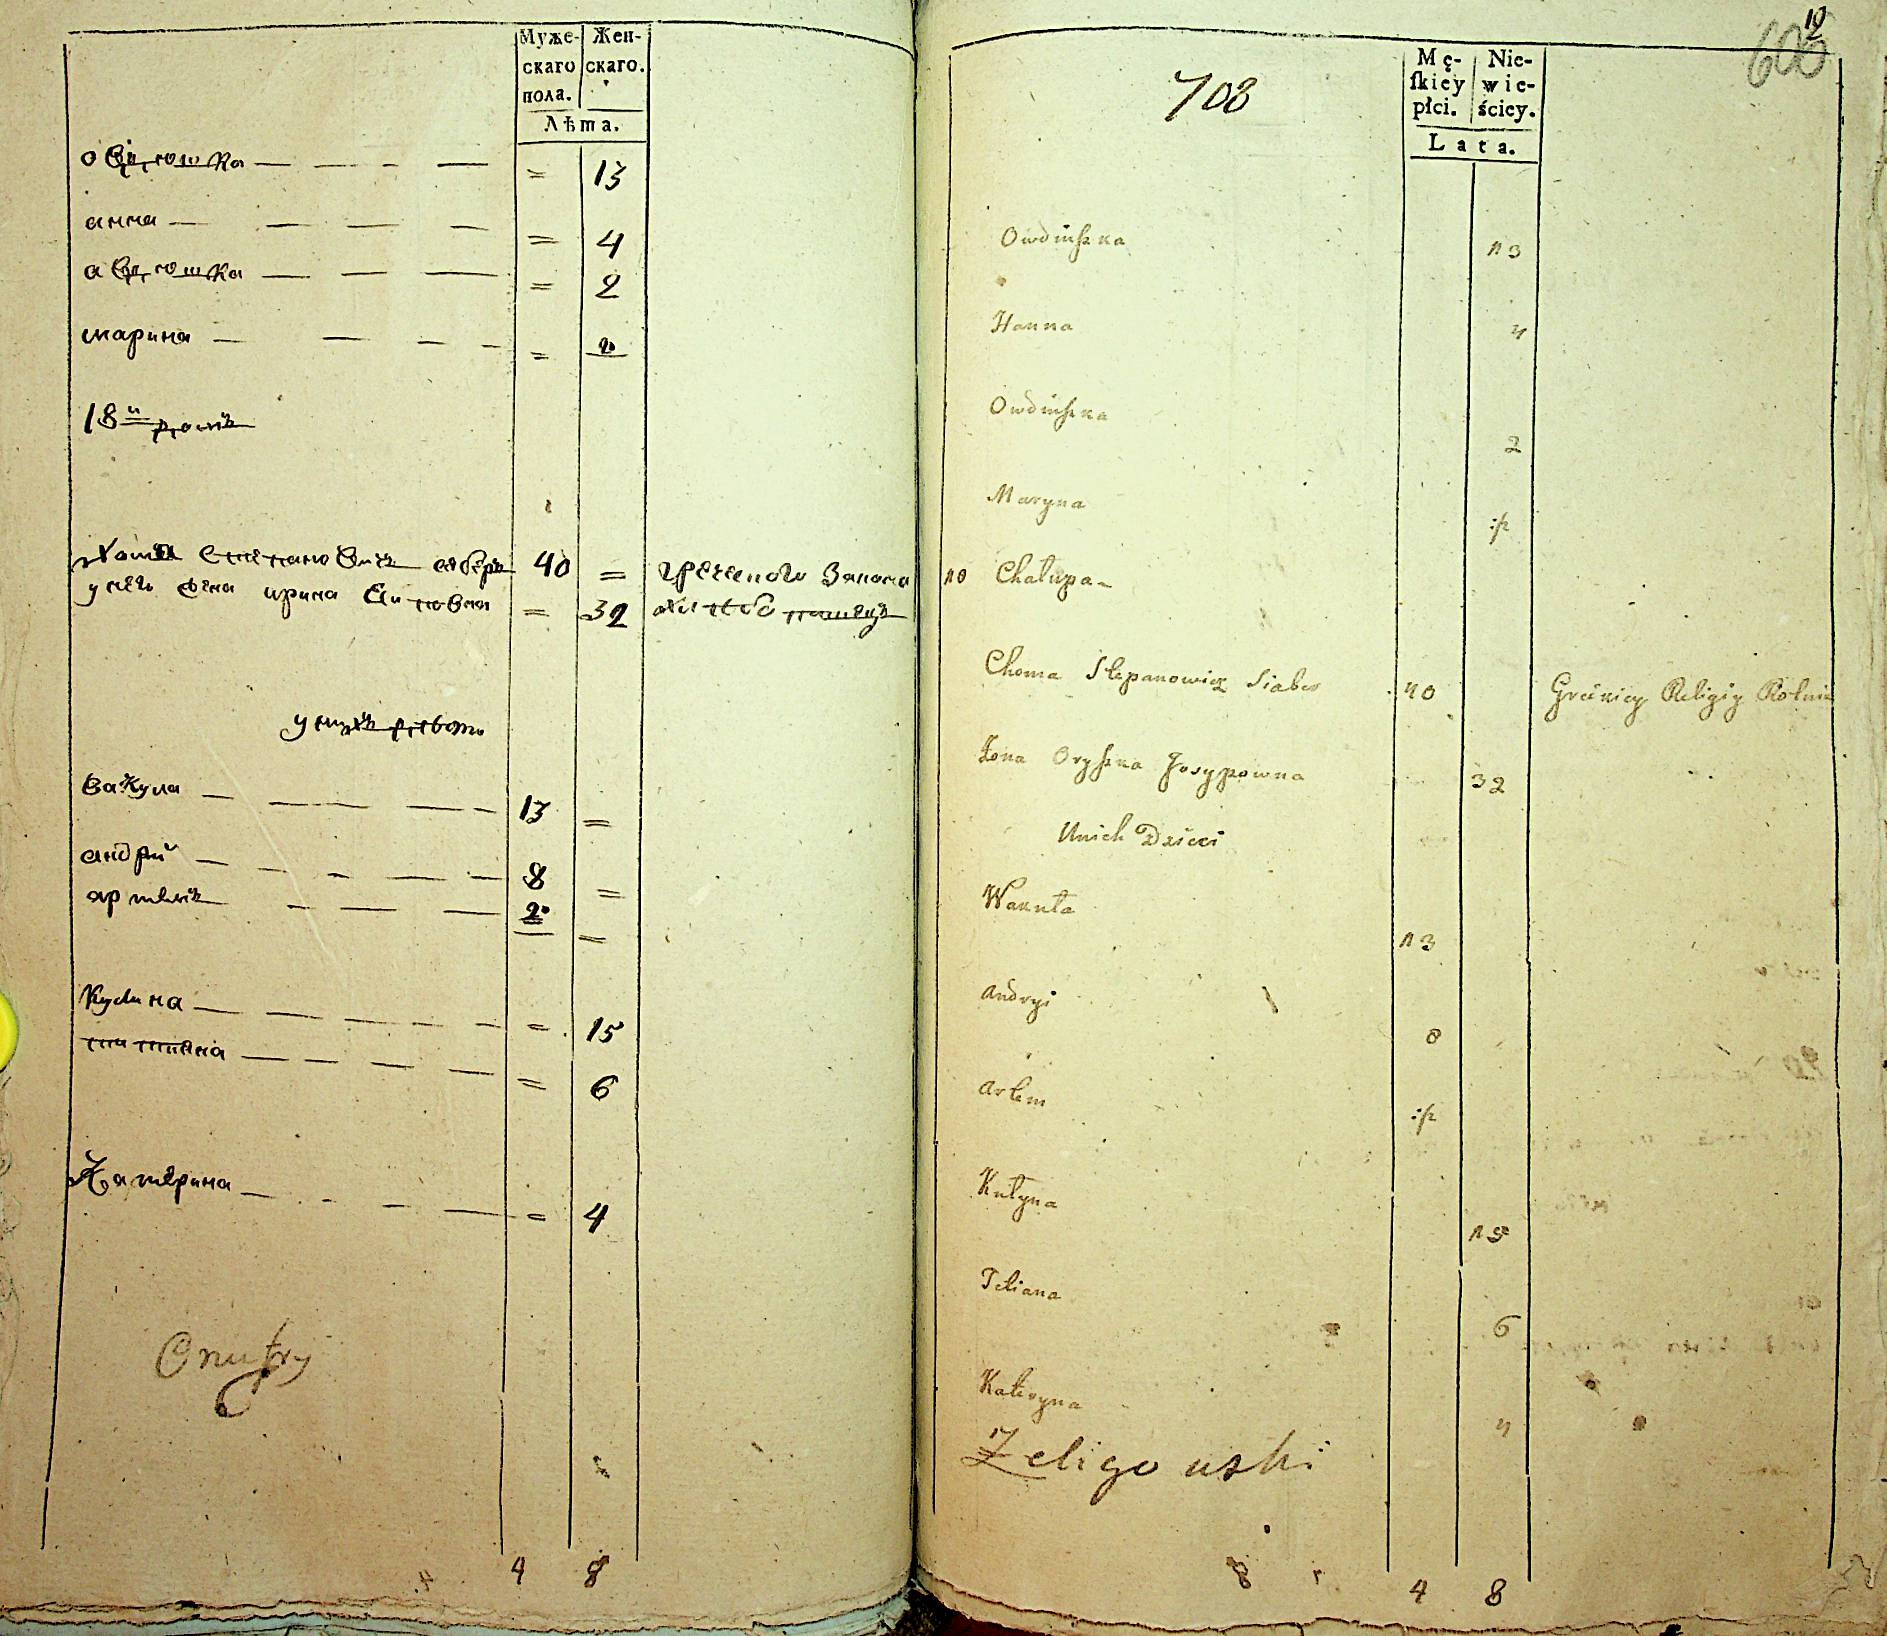 Муже-
скаго
пола.
Жен-
скаго.
Лѣта.
овдюшка — — - — = 13
анна — — — — = 4
авдюшка — — — = 2
марина — — - - = 2
18й домъ
хома степановичъ сяберъ 40 = греческого закона
у него жена ирина = 32
у нихъ детей
вакула — — — — 13 =
андрій — — - — — 8 =
артемъ — — — 2 =
кулина — — — — - - = 15
татияна — — — — — = 6
катерина — - - — = 4
Onufry
4 8
12
606
708
Mę-
ſkiey
płci.
Nie-
wie-
ściey.
Lata.
Owdiuszka 13
Hanna 4
Owdiuszka 2
Maryna :/2
10 Chałupa
Choma Stepanowicz Siaber 40 Greckiey Religiy Rolnik
Żona Oryszka Josypowna 32
U nich Dzieci
Wakuła 13
Andryi 8
Artem :/2
Kulyna 15
Tetiana 6
Kateryna 4
Zeligowski
4 8